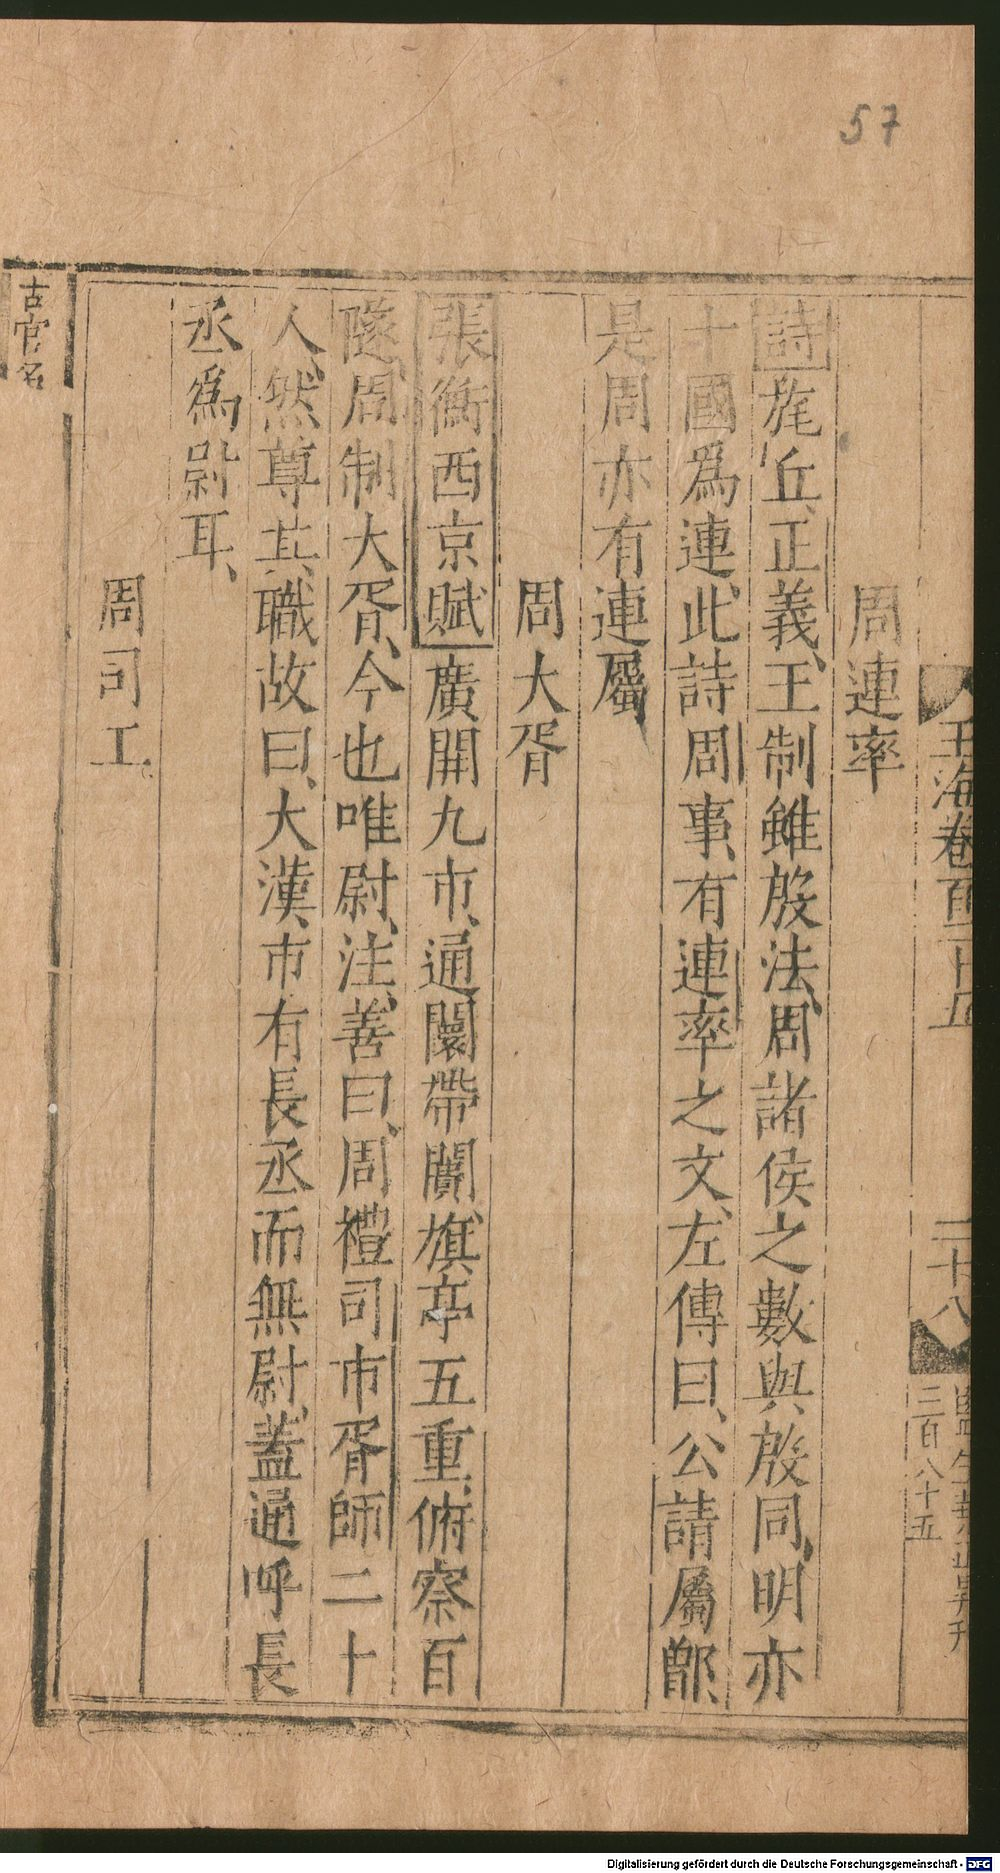 57
玉海卷百二十五
二十八
三百八十五
周連率
詩旄丘正義、王制雖殷法、周諸侯之數與殷同、明亦
十國爲連、此詩周事、有連率之文、左傳曰、公請屬鄫、
是周亦有連屬
周大胥
張衡西京賦廣開九市、通闤帶闠、旗亭五重、俯察百
隧、周制大胥、今也唯尉、注、善曰、周禮司市胥師二十
人、然尊其職故曰、大漢市有長丞而無尉、蓋通呼長
丞爲尉耳、
周司工
古官名
Digitalisierung gefördert durch die Deutsche Forschungsgemeinschaft - DFG